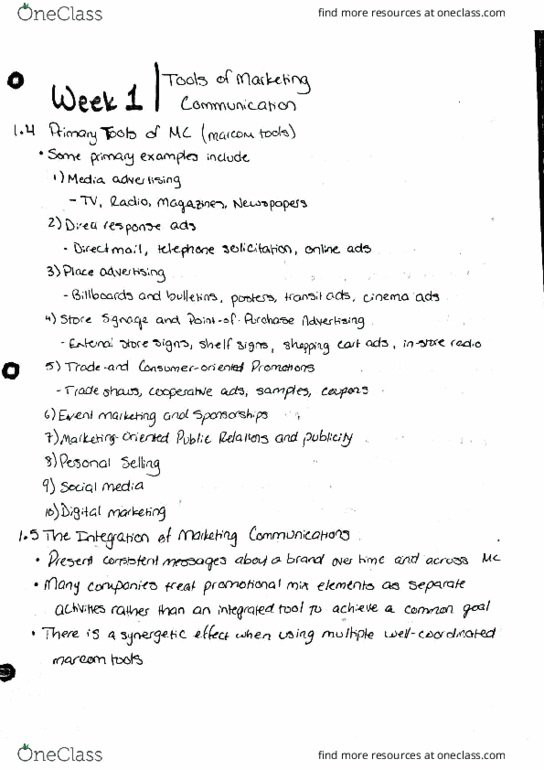 OneClass
find more resources at oneclass.com
Week 1 | Tools of Marketing
Communication
1.4 Primary Tools of MC (marcom tools)
• Some primary examples include
1) Media advertising
- TV, Radio, Magazines, Newspapers
2) Direct response ads
- Direct mail, telephone solicitation, online ads
3) Place advertising
- Billboards and bulletins, posters, transit ads, cinema ads
4) Store Signage and Point-of-Purchase Advertising
- External store signs, shelf signs, shopping cart ads, in-store radio
5) Trade-and Consumer-oriented Promotions
- Trade shows, cooperative ads, samples, coupons
6) Event marketing and Sponsorships
7) Marketing-Oriented Public Relations and publicity
8) Pesonal Selling
9) Social media
10) Digital marketing
1.5 The Integration of Marketing Communications
• Present consistent messages about a brand over time and across MC
• Many companies treat promotional mix elements as separate
activities rather than an integrated tool to achieve a common goal
• There is a synergetic effect when using multiple well-coordinated
marcom tools
OneClass
find more resources at oneclass.com